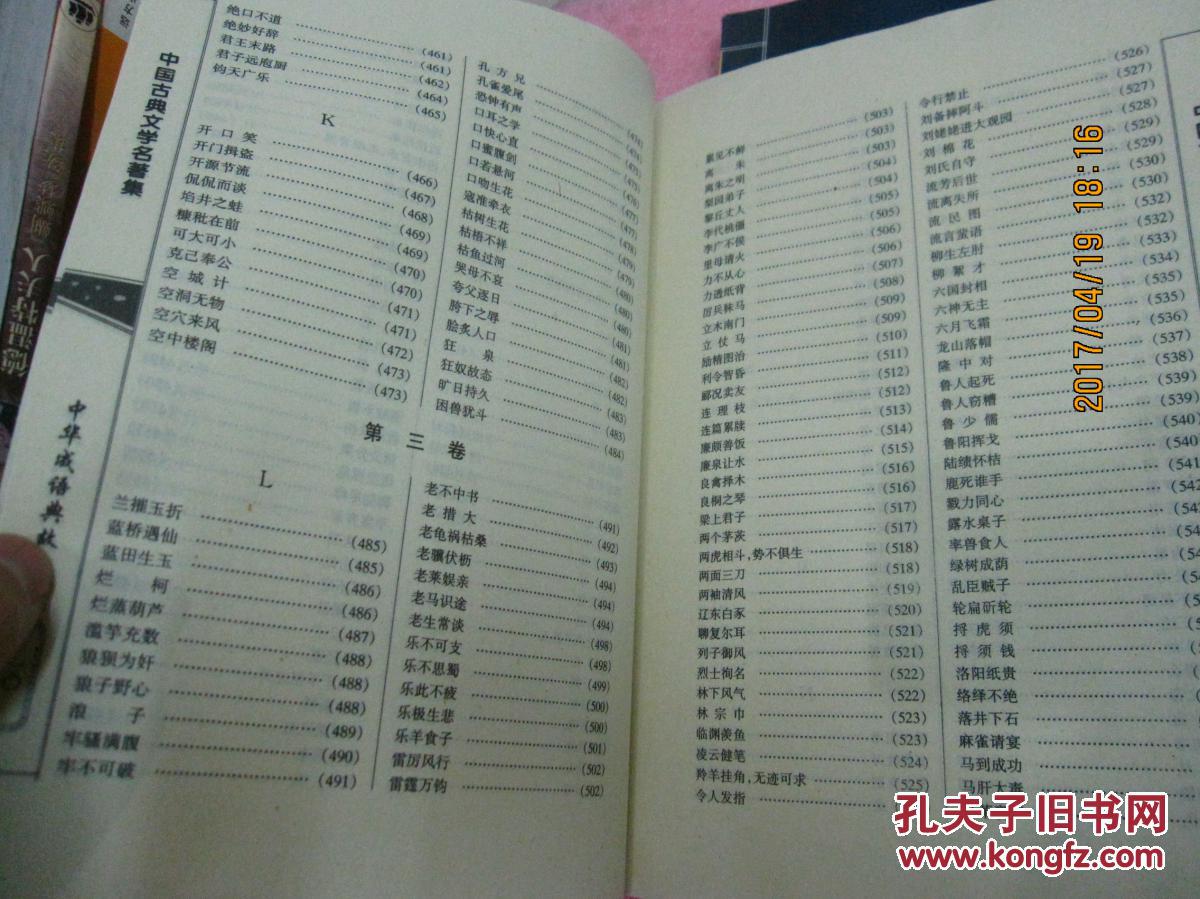 中国古典文学名著集
中华成语典故
绝口不道 (461)
绝妙好辞 (461)
君王末路 (462)
君子远庖厨 (464)
钧天广乐 (465)
K
开口笑 (466)
开门揖盗 (467)
开源节流 (468)
侃侃而谈 (469)
埳井之蛙 (469)
糠秕在前 (470)
可大可小 (470)
克己奉公 (471)
空城计 (471)
空洞无物 (472)
空穴来风 (473)
空中楼阁 (473)
孔方兄
孔雀爱尾
恐钟有声
口耳之学
口快心直
口蜜腹剑
口若悬河
口吻生花
寇准牵衣
枯树生花
枯梧不祥
枯鱼过河
哭母不哀
夸父逐日
胯下之辱
脍炙人口
狂泉
狂奴故态
旷日持久
困兽犹斗 (484)
第三卷
L
兰摧玉折 (485)
蓝桥遇仙 (485)
蓝田生玉 (486)
烂柯 (486)
烂蒸葫芦 (487)
滥竽充数 (488)
狼狈为奸 (488)
狼子野心 (488)
浪子 (489)
牢骚满腹 (490)
牢不可破 (491)
老不中书 (491)
老措大 (492)
老龟祸枯桑 (493)
老骥伏枥 (494)
老莱娱亲 (494)
老马识途 (494)
老生常谈 (498)
乐不可支 (498)
乐不思蜀 (499)
乐此不疲 (500)
乐极生悲 (500)
乐羊食子 (501)
雷厉风行 (502)
雷霆万钧 (502)
累见不鲜 (503)
离朱 (503)
离朱之明 (503)
梨园弟子 (504)
黎丘丈人 (504)
李代桃僵 (505)
李广不侯 (505)
里母请火 (506)
力不从心 (506)
力透纸背 (507)
厉兵秣马 (508)
立木南门 (509)
立仗马 (509)
励精图治 (510)
利令智昏 (511)
郦况卖友 (512)
连理枝 (512)
连篇累牍 (513)
廉颇善饭 (514)
廉泉让水 (515)
良禽择木 (516)
良桐之琴 (516)
梁上君子 (517)
两个茅茨 (517)
两虎相斗,势不俱生 (518)
两面三刀 (518)
两袖清风 (519)
辽东白豕 (520)
聊复尔耳 (521)
列子御风 (521)
烈士徇名 (522)
林下风气 (522)
林宗巾 (523)
临渊羡鱼 (523)
凌云健笔 (524)
羚羊挂角,无迹可求 (525)
令人发指
令行禁止 (526)
刘备摔阿斗 (527)
刘姥姥进大观园 (527)
刘棉花 (528)
刘氏自守 (529)
流芳后世 (529)
流离失所 (530)
流民图 (530)
流言蜚语 (532)
柳生左肘 (532)
柳絮才 (533)
六国封相 (534)
六神无主 (535)
六月飞霜 (535)
龙山落帽 (536)
隆中对 (537)
鲁人起死 (538)
鲁人窃糟 (539)
鲁少儒 (539)
鲁阳挥戈 (540)
陆绩怀桔
鹿死谁手
戮力同心
露水桌子
率兽食人
绿树成荫
乱臣贼子
轮扁斫轮
捋虎须
捋须钱
洛阳纸贵
络绎不绝
落井下石
麻雀请宴
马到成功
马肝大毒
2017/04/19 18:16
孔夫子旧书网
www.kongfz.com